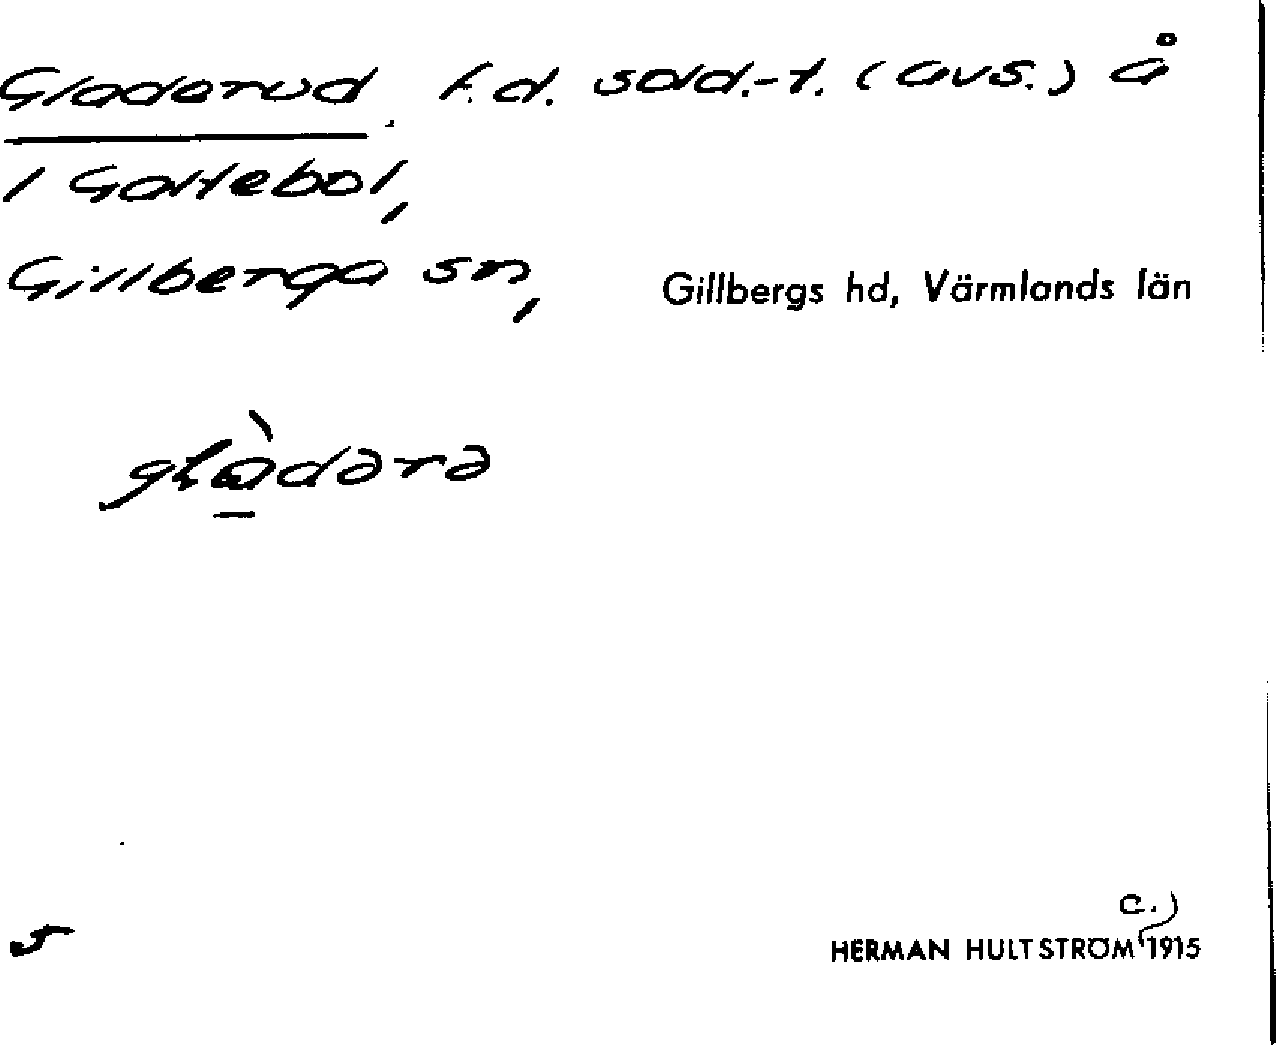 Gladerud f.d. sold.-t. (avs.) å
1 Galtebol,
Gillberga sn, Gillbergs hd, Värmlands län
glàdərə
5
c.)
HERMAN HULTSTRÖM 1915